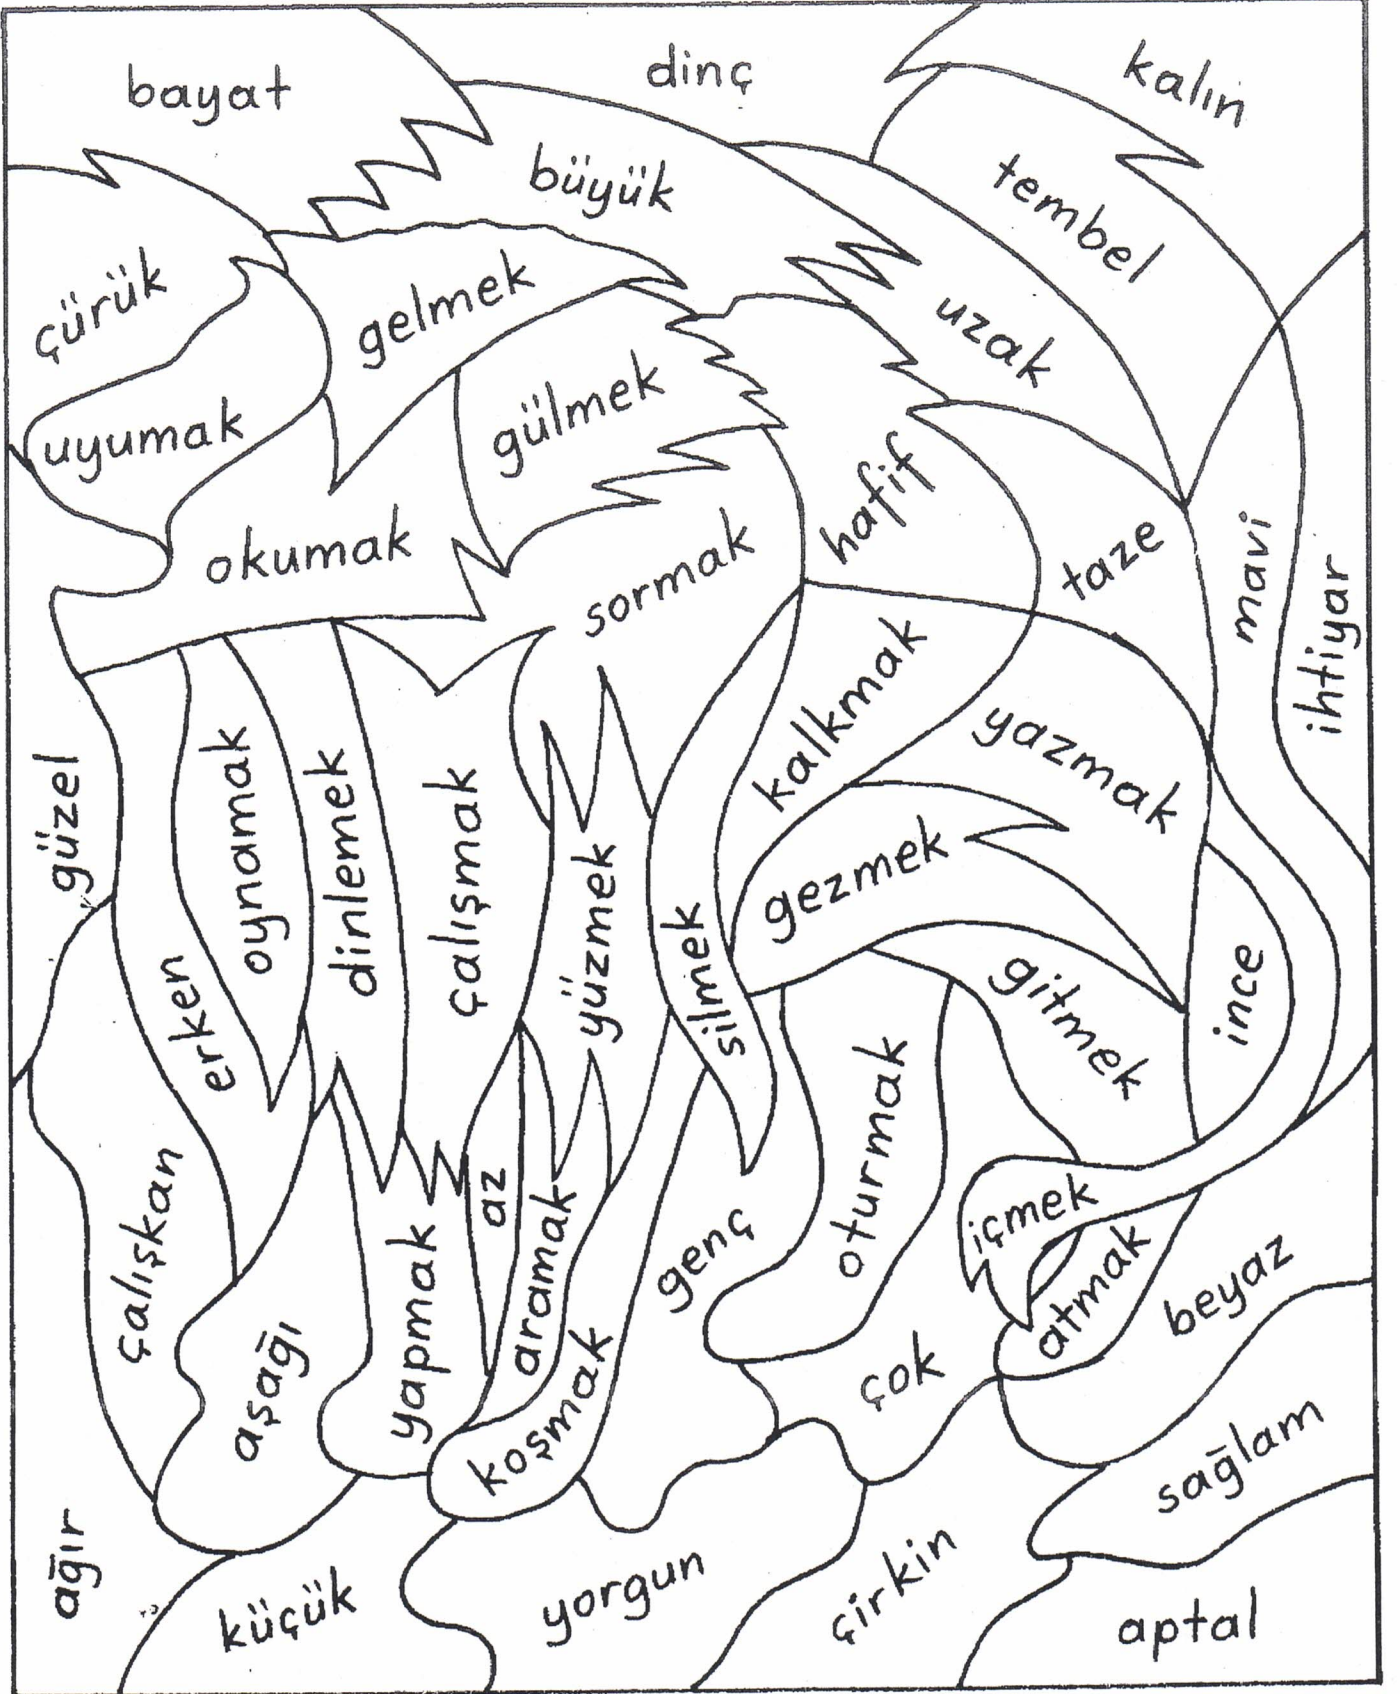 bayat
dinç
kalın
büyük
tembel
çürük
gelmek
uzak
uyumak
gülmek
hafif
okumak
sormak
taze
mavi
ihtiyar
kalkmak
yazmak
güzel
oynamak
dinlemek
çalışmak
yüzmek
gezmek
silmek
erken
gitmek
ince
çalışkan
oturmak
az
aramak
genç
içmek
atmak
beyaz
aşağı
yapmak
koşmak
çok
sağlam
ağır
küçük
yorgun
çirkin
aptal